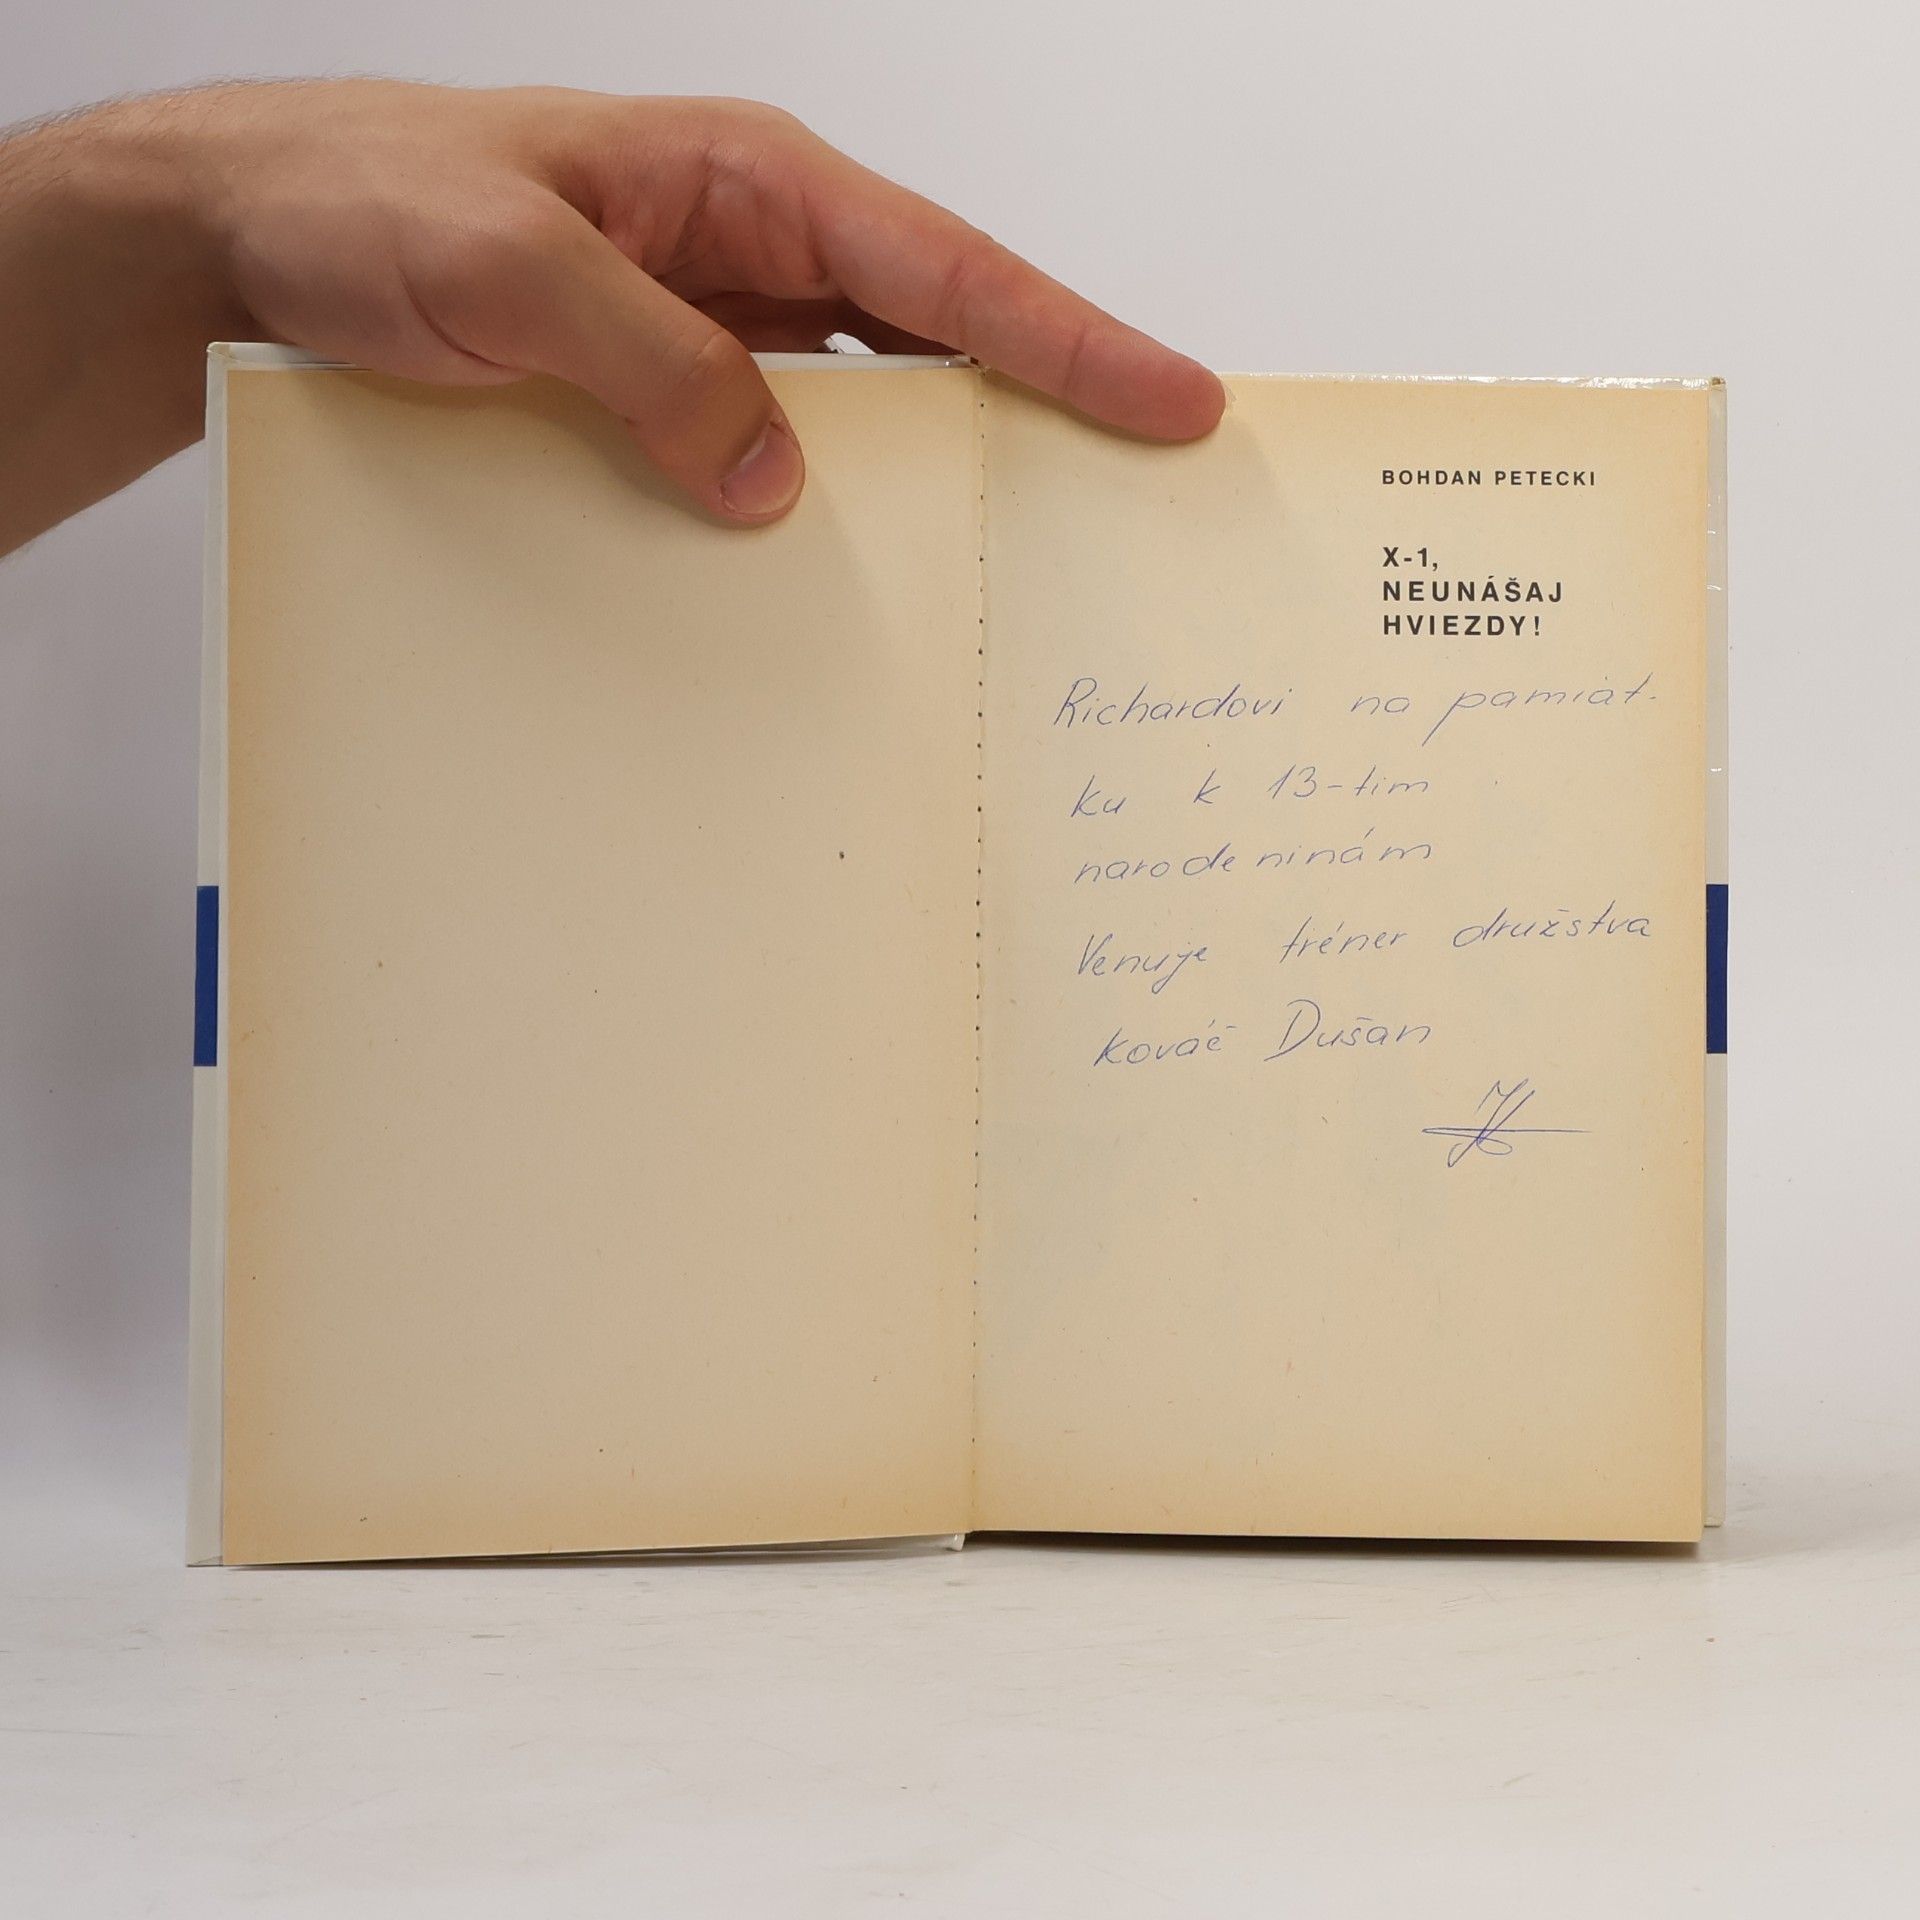 BOHDAN PETECKI
X-1,
NEUNÁŠAJ
HVIEZDY!
Richardovi na pamiat-
ku k 13-tim
narodeninám
Venuje tréner družstva
Kováč Dušan